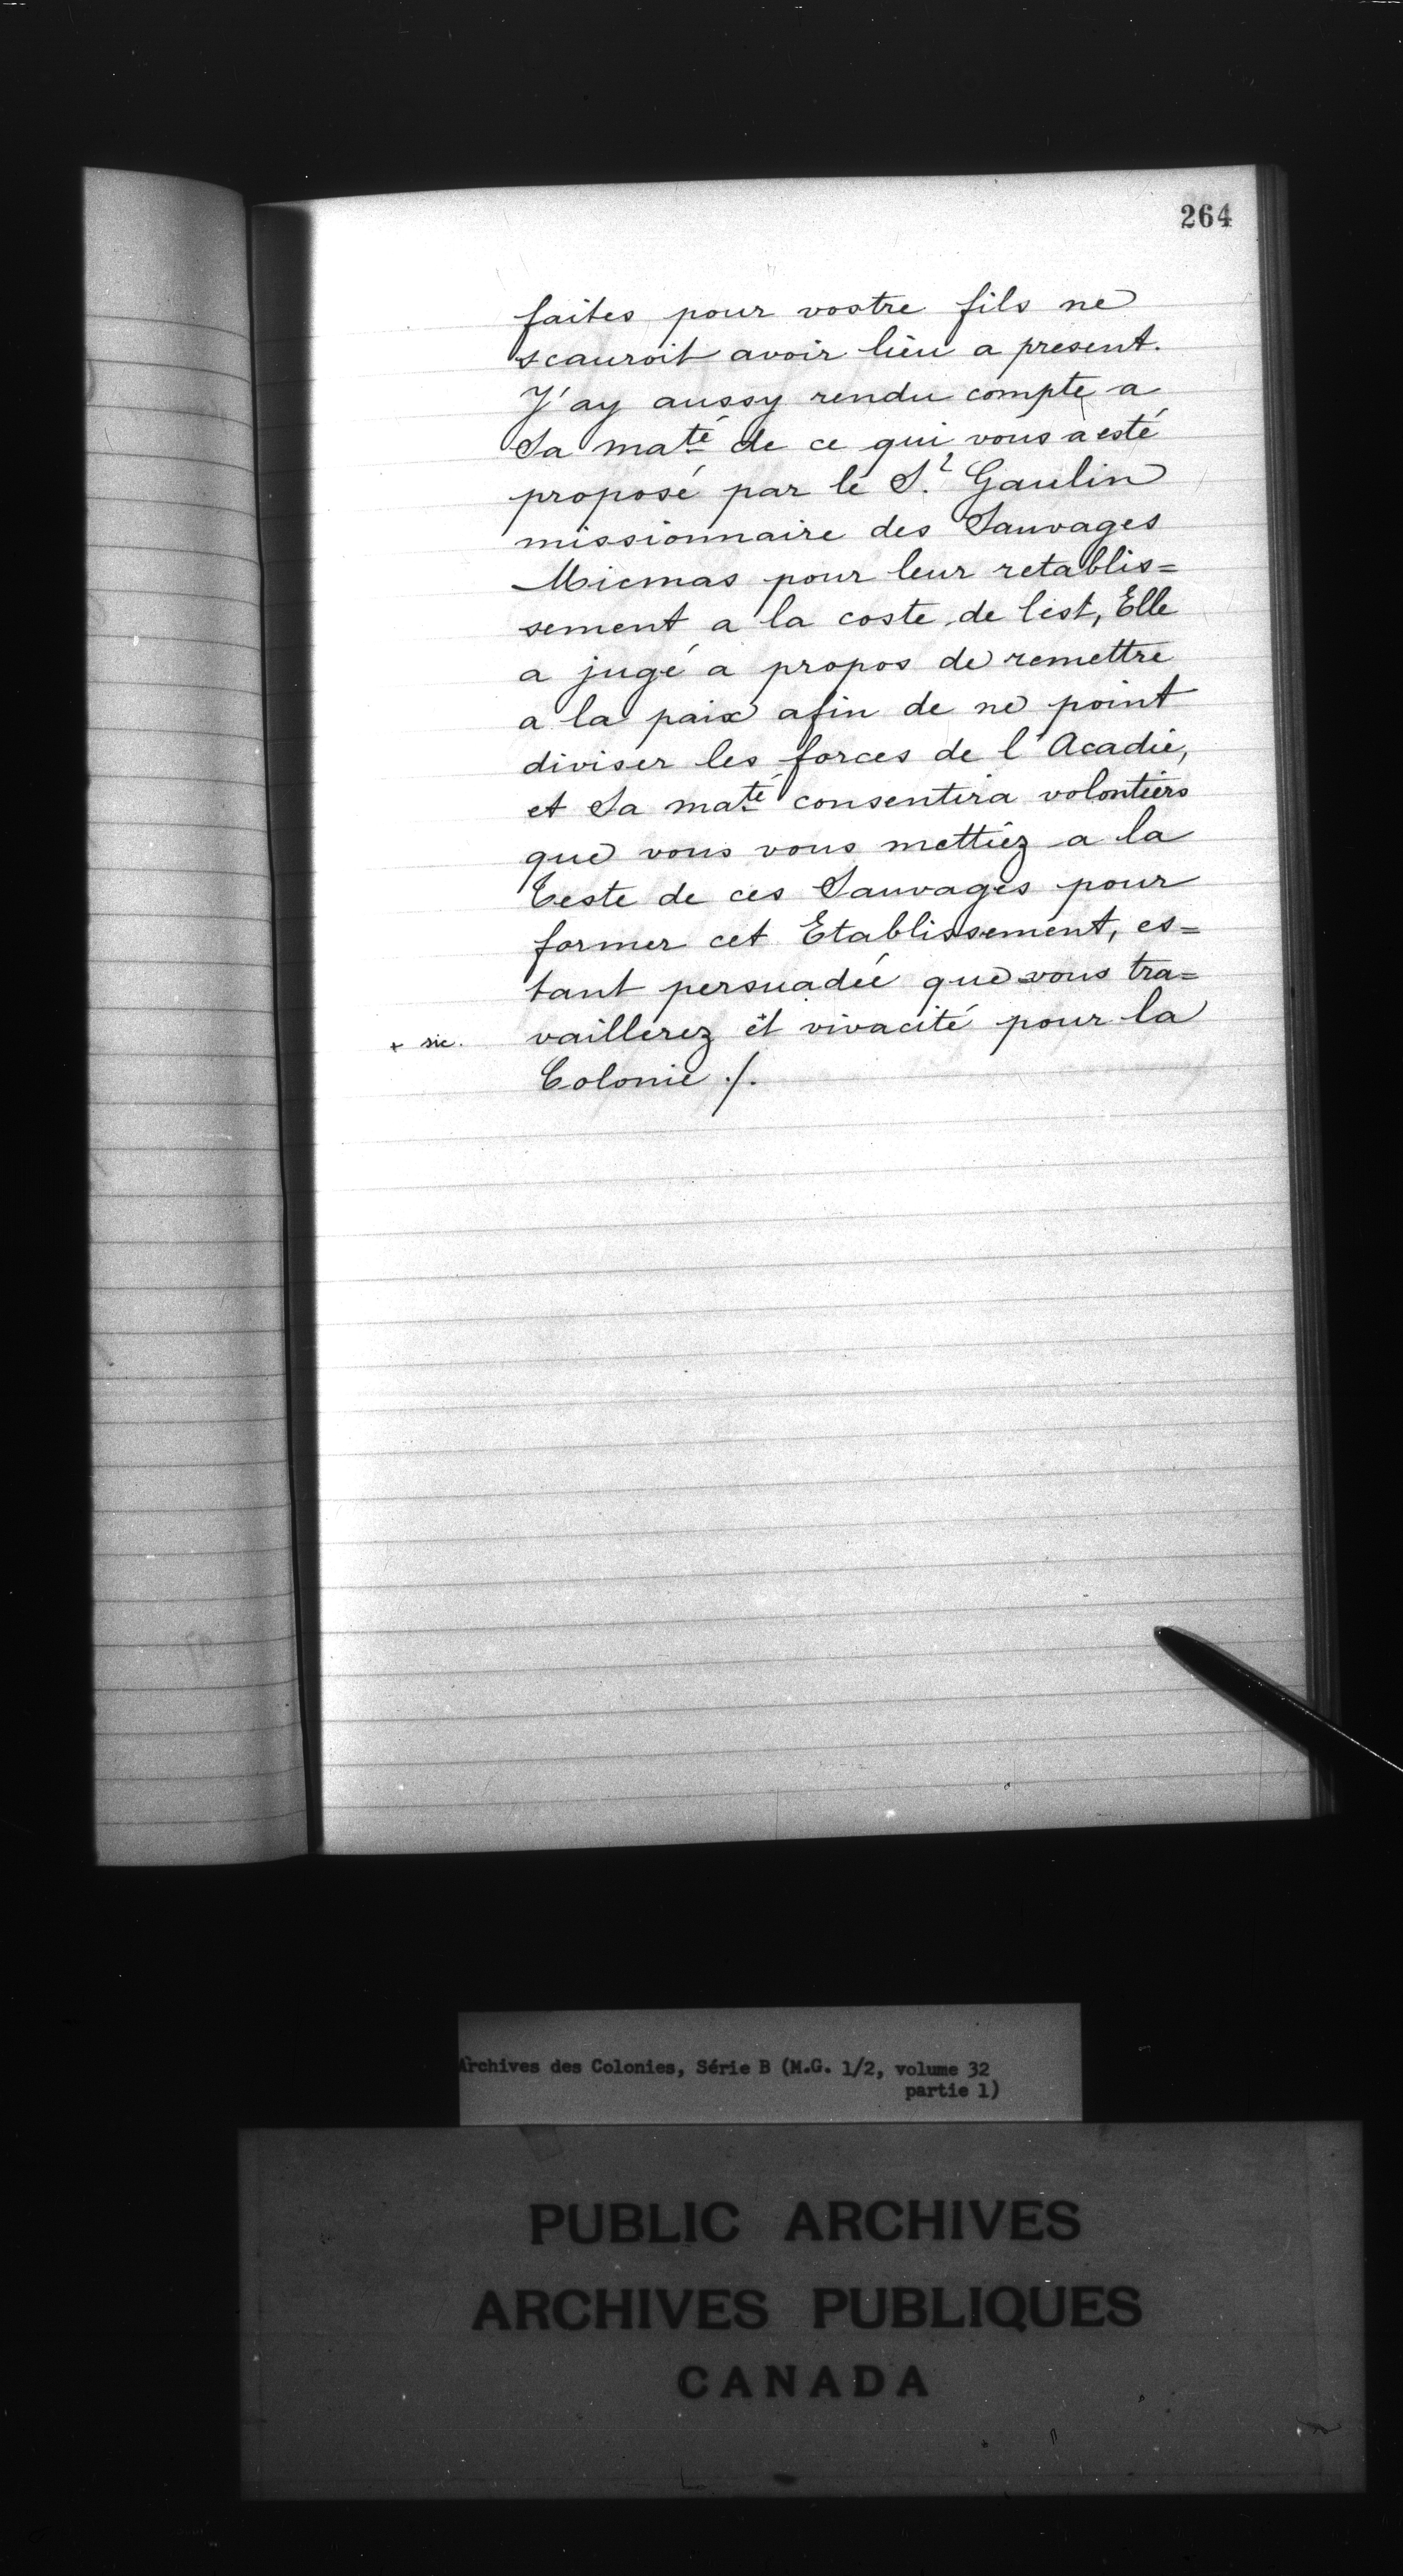 264
faites pour vostre fils ne
scauroit avoir lieu a present.
J'ay aussy rendu compte a
Sa maté de ce qui vous a esté
proposé par le Sr. Gaulin
missionnaire des Sauvages
Micmas pour leur retablis=
sement a la coste de l'est, Elle
a jugé a propos de remettre
a la paix afin de ne point
diviser les forces de l'Acadie,
et Sa maté consentira volontiers
que vous vous mettiez a la
teste de ces Sauvages pour
former cet Etablissement, es=
tant persuadée que vous tra=
+ sic. vaillerez et vivacité pour la
Colonie ./.
Archives des Colonies, Série B (M.G. 1/2, volume 32
partie 1)
PUBLIC ARCHIVES
ARCHIVES PUBLIQUES
CANADA